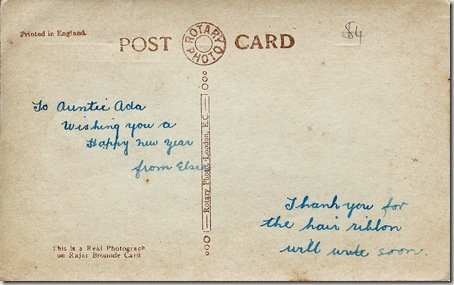 Printed in England.
POST CARD
ROTARY PHOTO
$4
To Auntie Ada
Wishing you a
Happy new year
from Elsie
Rotary Photo, London, E.C.
Thank you for
the hair ribbon
will write soon.
This is a Real Photograph
on Rajar Bromide Card